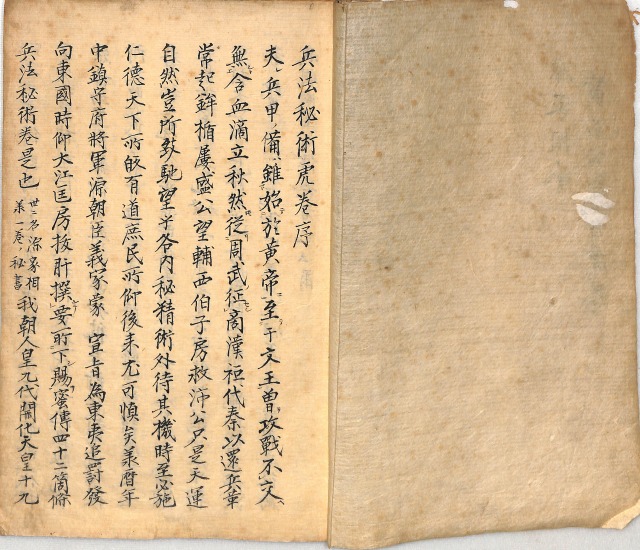 兵法秘術虎巻序
夫兵甲備雖始於黄帝至于文王曽攻戦不文
無含血滴立秋然従周武征商漢祖代秦以還兵革
常起鉾楯屡盛公望輔西伯子房救沛公只是天運
自然豈所致馳望乎吝内秘精術外待其機時至必施
仁德天下所皈百道庶民所仰後来尤可慎矣暦年
中鎮守府将軍源朝臣義家蒙宣旨為東夷追罰發
向東國時仰大江匡房抜肝撰要所下賜蜜傳四十二箇條
兵法秘術巻是也世二名源家相承一巻秘書我朝人皇九代開化天皇十九